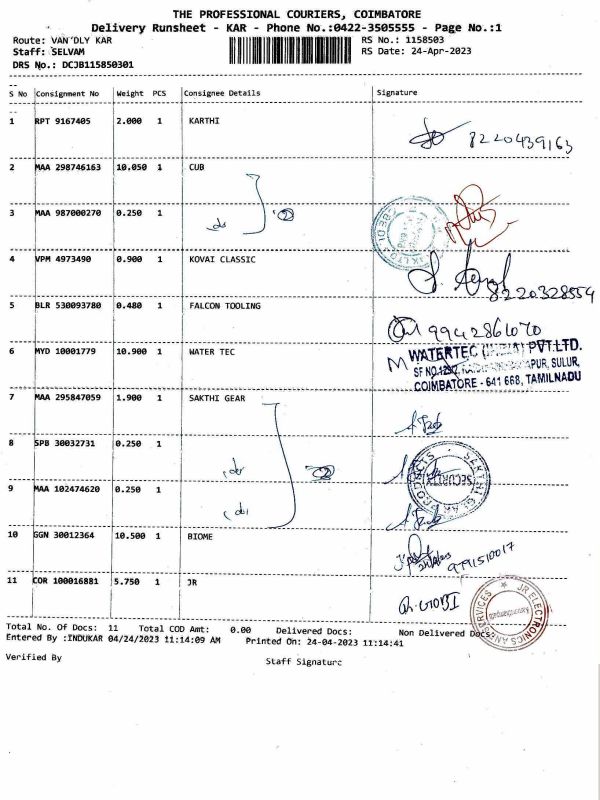 THE PROFESSIONAL COURIERS, COIMBATORE
Delivery Runsheet - KAR - Phone No.:0422-3505555 - Page No.:1
Route: VAN'DLY KAR RS No.: 1158503
Staff: SELVAM RS Date: 24-Apr-2023
DRS No.: DCJB115850301
S No Consignment No Weight PCS Consignee Details Signature
1 RPT 9167405 2.000 1 KARTHI
8220439163
2 MAA 298746163 10.050 1 CUB
3 MAA 987000270 0.250 1 do ②
4 VPM 4973490 0.900 1 KOVAI CLASSIC
8220328554
5 BLR 530093780 0.480 1 FALCON TOOLING
9942861070
6 MYD 10001779 10.900 1 WATER TEC
WATERTEC (INDIA) PVT.LTD.
SULUR,
COIMBATORE - 641 668, TAMILNADU
7 MAA 295847059 1.900 1 SAKTHI GEAR
8 SPB 30032731 0.250 1 do ②
SAKTHI GEAR PRODUCTS
SECURITY
9 MAA 102474620 0.250 1 do
10 GGN 30012364 10.500 1 BIOME
9791510017
11 COR 100016881 5.750 1 JR
JR ELECTRONICS AND SERVICES
Total No. Of Docs: 11 Total COD Amt: 0.00 Delivered Docs: Non Delivered Docs:
Entered By :INDUKAR 04/24/2023 11:14:09 AM Printed On: 24-04-2023 11:14:41
Verified By Staff Signature